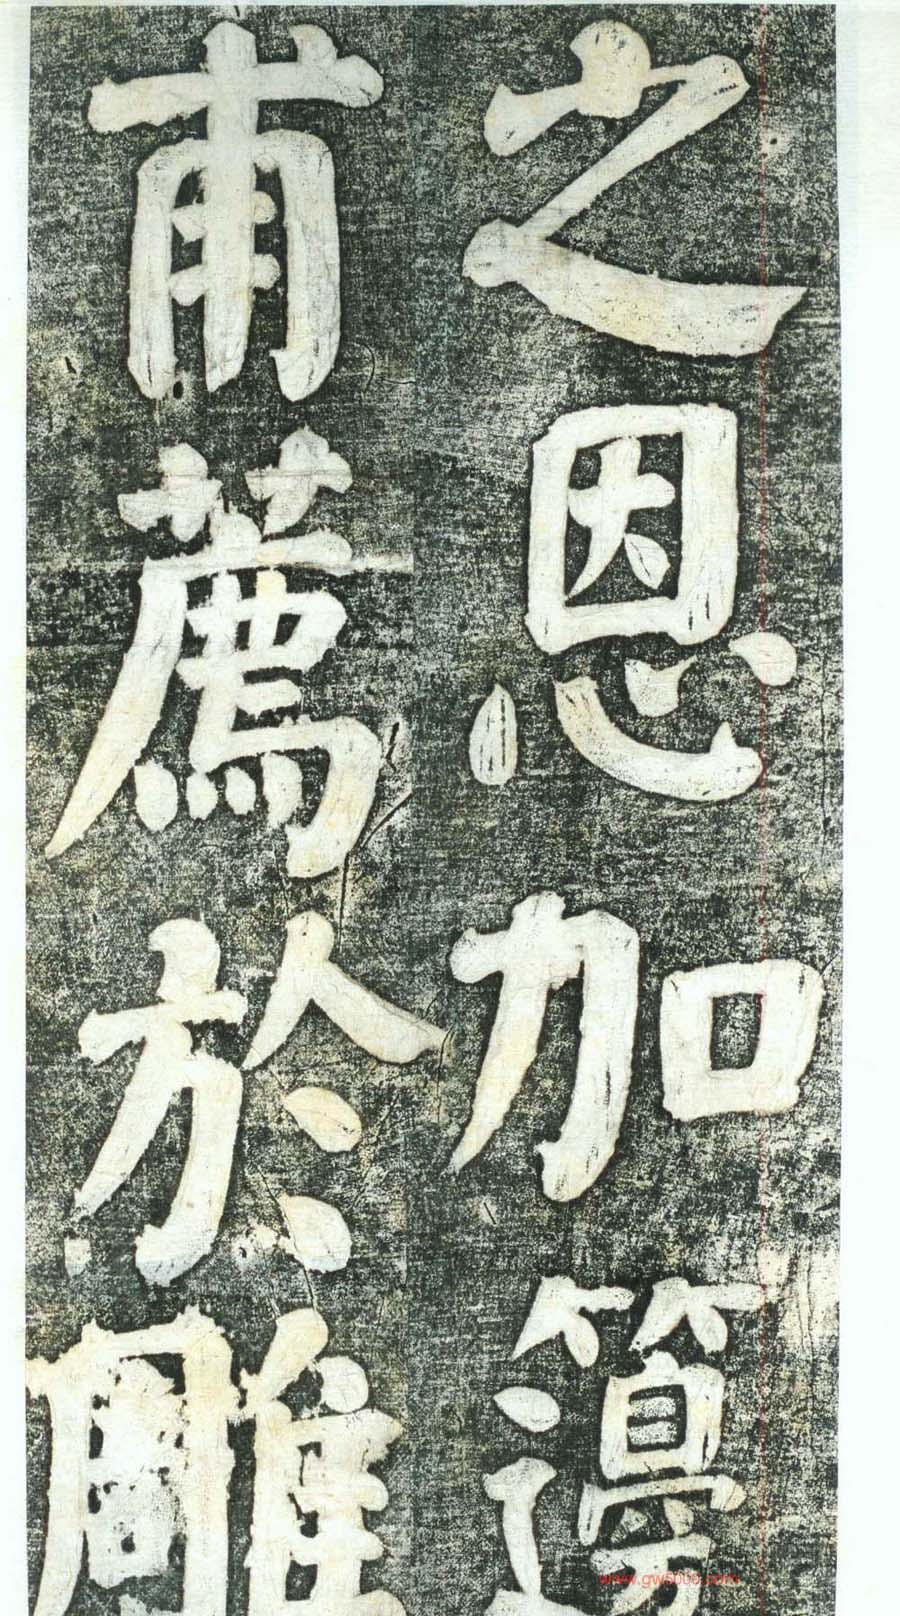 之恩加籩
甫薦於雕
www.gw5000.com